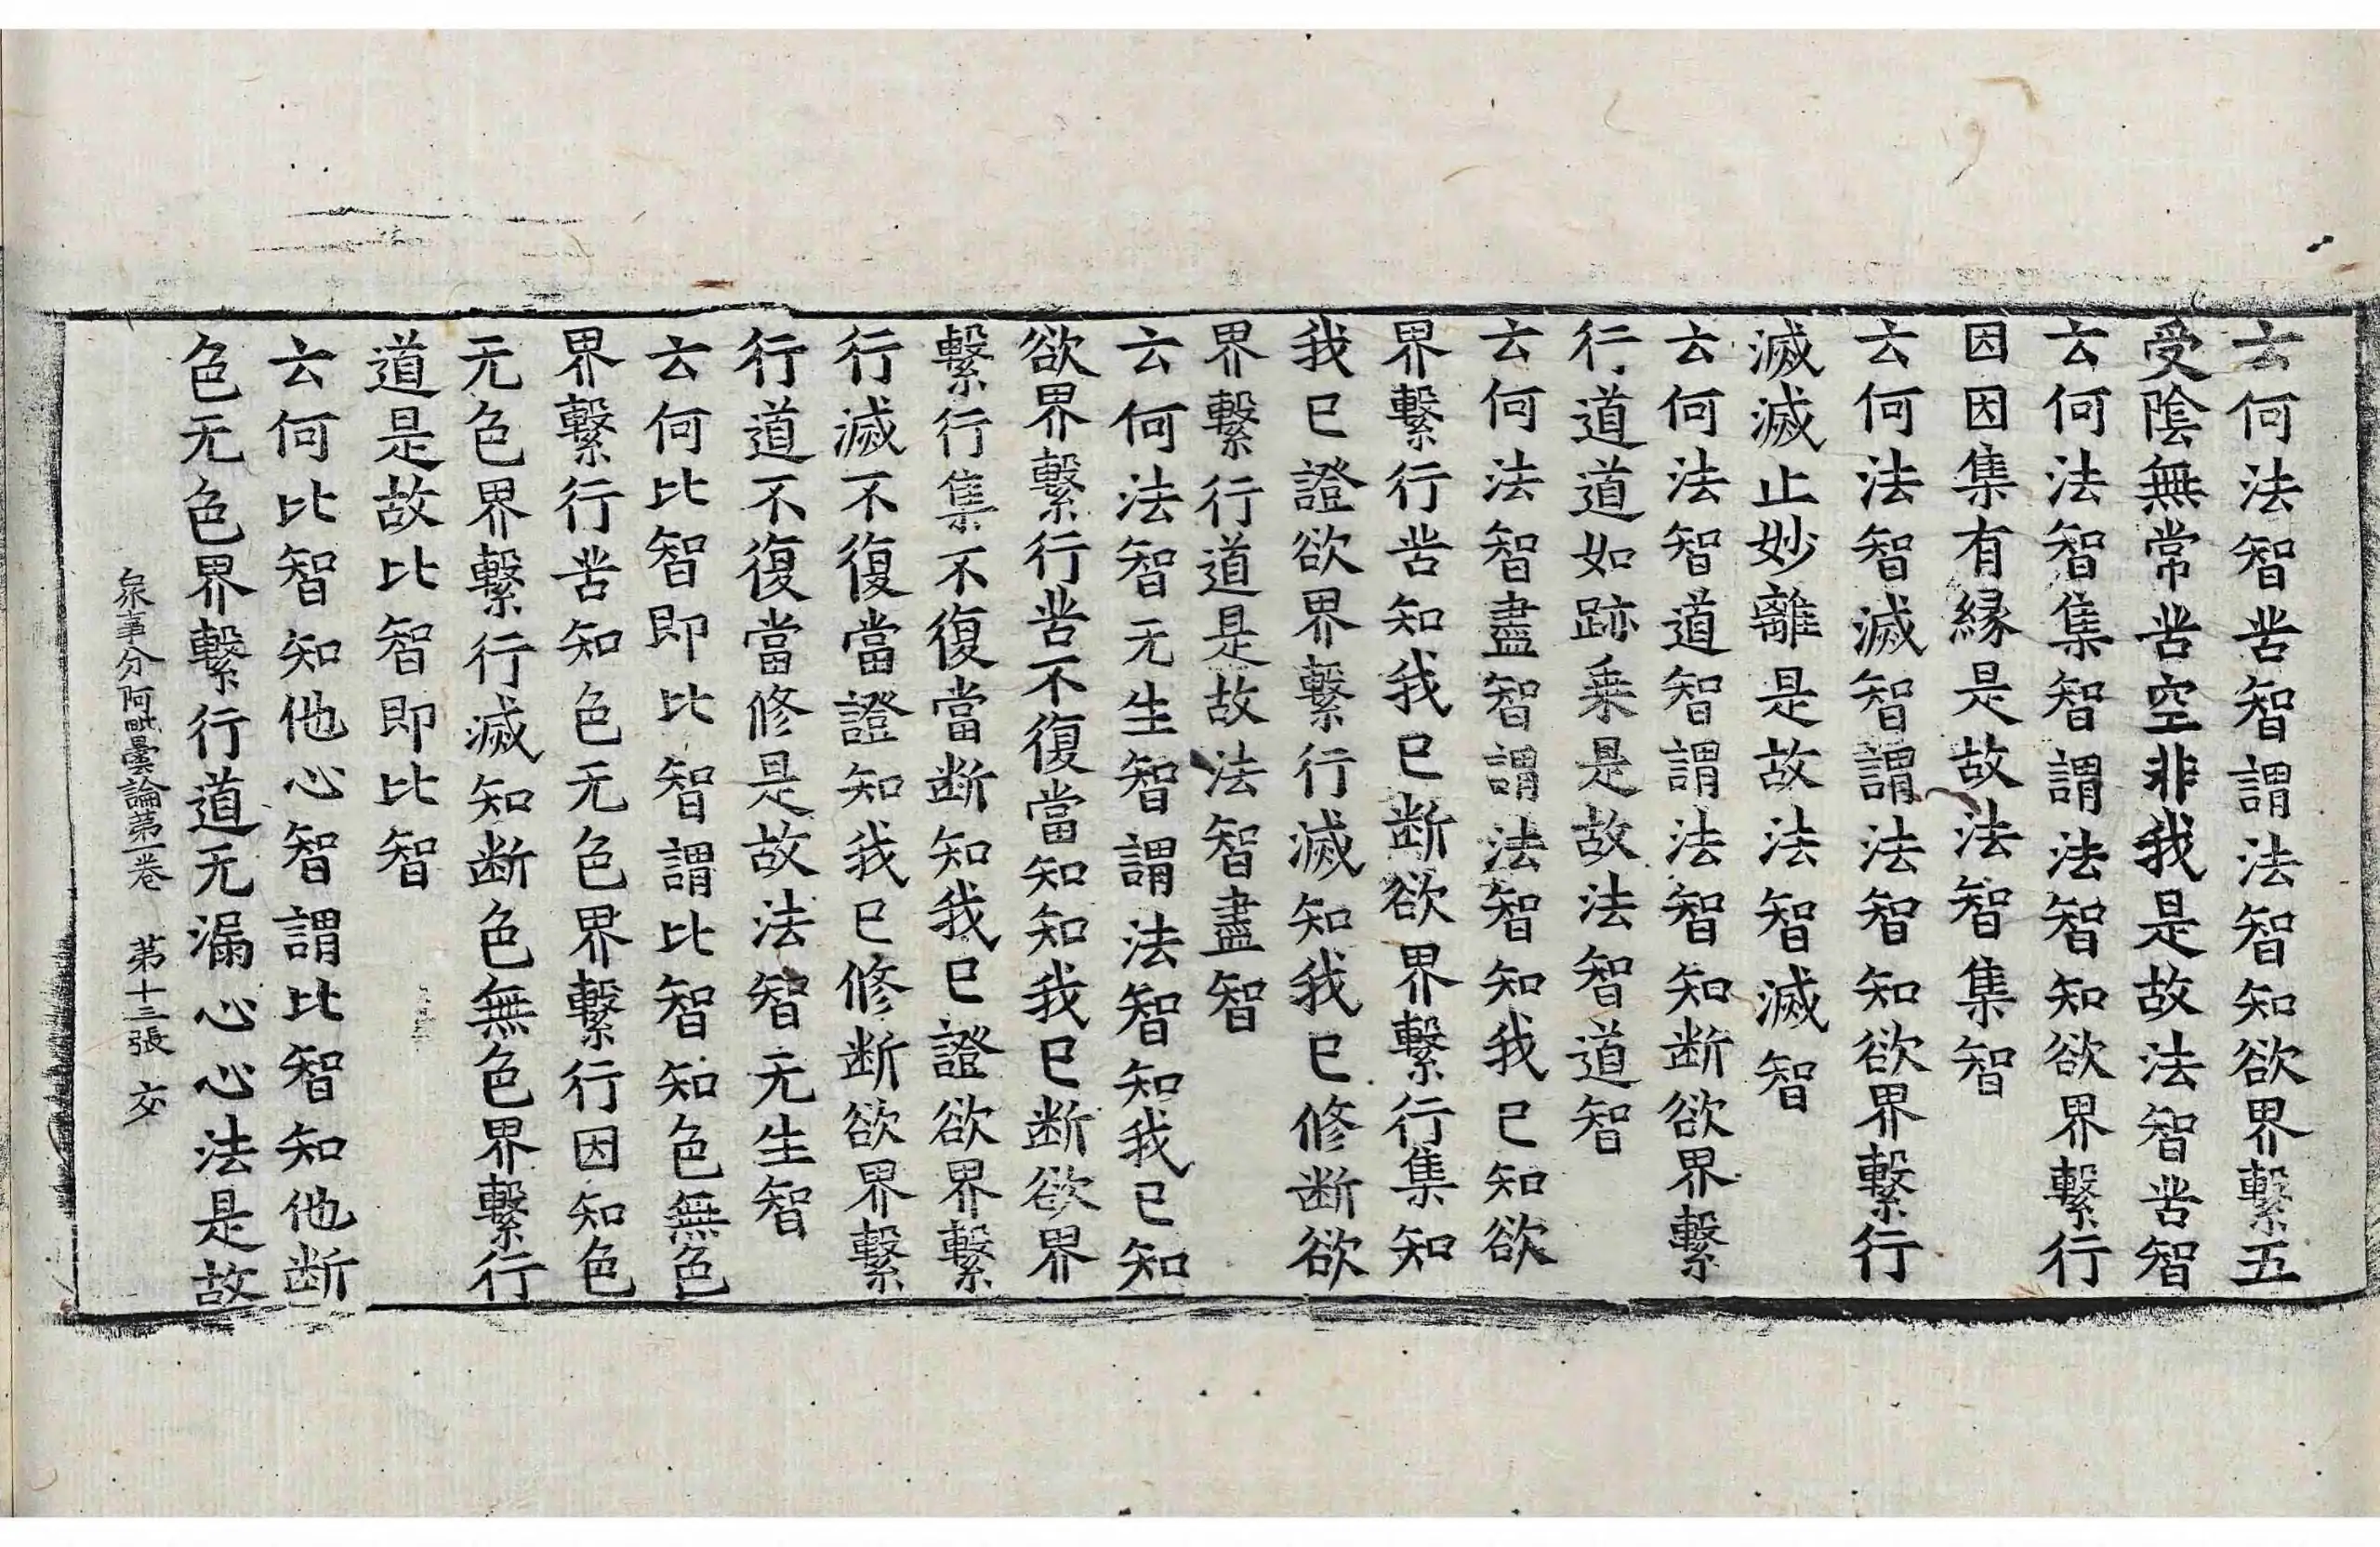 云何法智苦智謂法智知欲界繫五
受陰無常苦空非我是故法智苦智
云何法智集智謂法智知欲界繫行
因因集有緣是故法智集智
云何法智滅智謂法智知欲界繫行
滅滅止妙離是故法智滅智
云何法智道智謂法智知斷欲界繫
行道道如跡乗是故法智道智
云何法智盡智謂法智知我已知欲
界繫行苦知我已斷欲界繫行集知
我已證欲界繫行滅知我已修斷欲
界繫行道是故法智盡智
云何法智无生智謂法智知我已知
欲界繫行苦不復當知知我已斷欲界
繫行集不復當斷知我已證欲界繫
行滅不復當證知我已修斷欲界繫
行道不復當修是故法智无生智
云何比智即比智謂比智知色無色
界繫行苦知色无色界繫行因知色
无色界繫行滅知斷色無色界繫行
道是故比智即比智
云何比智知他心智謂比智知他断
色无色界繫行道无漏心心法是故
衆事分阿毗曇論第一卷 第十三張 交